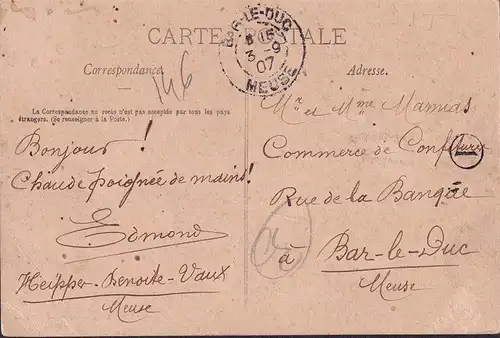 CARTE POSTALE
BAR-LE-DUC
3-9
07
MEUSE
Correspondance.
146
Adresse.
La Correspondance au recto n'est pas acceptée par tous les pays
étrangers. (Se renseigner à la Poste.)
Bonjour !
Chaude poignée de mains !
Edmond
Heipper-Benoite-Vaux
Meuse
Mr et Mme Mamias
Commerce de Confiture
1
Rue de la Banque
à Bar-le-Duc
Meuse